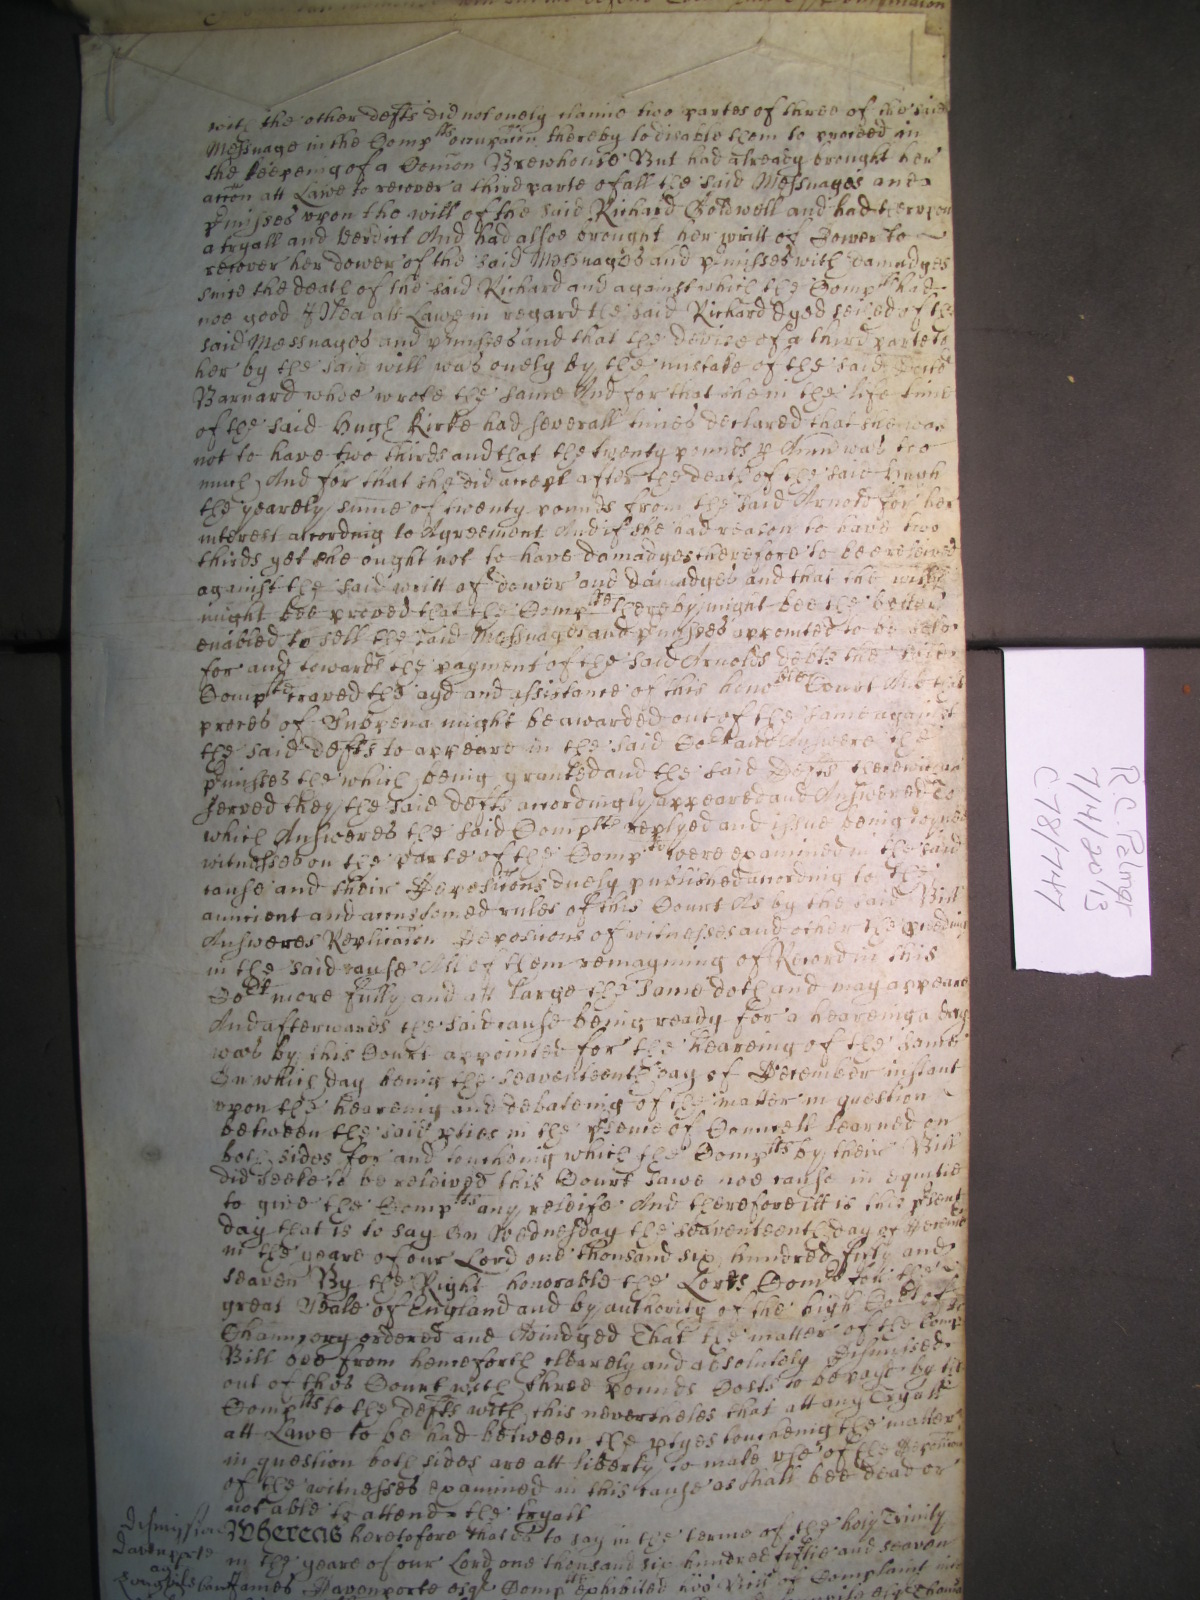 with the other defts did not onely claime two partes of three of the said
Messuage in the Complts occupacon thereby to disable them to proceed in
the keepeing of a Comon Brewhouse But had already brought her
accon att Lawe to recover a third parte of all the said Messuages and
pmisses upon the will of the said Richard Coldwell and had thereupon
a tryall and Verdict And had alsoe brought her writt of Dower to
recover her dower of the said Messuages and pmisses with damadges
since the death of the said Richard and against which the Complts had
noe good Plea att Lawe in regard the said Richard dyed seized of the
said Messuages and pmisses and that the devise of a third parte to
her by the said will was onely by the mistake of the said
Barnard whoe wrote the same And for that shee in the life time
of the said Hugh Kirke had severall times declared that she was
not to have two thirds and that the twenty pounds p Annu was too
much And for that she did accept after the death of the said Hugh
the yearely sume of twenty pounds from the said Arnold for her
interest according to Agreement And if she had reason to have two
thirds yet she ought not to have damadges therefore to bee releived
against the said writt of dower and damadges and that the will
might bee proved that the Complts thereby might bee the better
enabled to sell the said Messuages and pmisses appointed to be sold
for and towards the payment of the said Arnolds debts the said
Complts craved the ayd and assistance of this honoble Court And that
proces of Subpena might be awarded out of the same against
the said defts to appeare in the said Cort and answere the
pmisses the which being granted and the said Defts therewith
served they the said defts accordingly appeared and Answered To
which Answeres the said Complts replyed and issue being ioyned
witnesses on the parte of the Complts were examined in the said
cause and their Deposicons duely published according to the
auncient and accustomed rules of this Court As by the said Bill
Answeres Replicacon Deposicons of witnesses and other the pceedings
in the said cause All of them remayning of Record in this
Cort more fully and att large the same doth and may appeare
And afterwards the said cause being ready for a heareing a day
was by this Court appointed for the heareing of the same
On which day being the seaventeenth day of December instant
upon the heareing and debateing of the matter in question
betweene the said pties in the psence of Councell learned on
both sides for and toucheing which the Complts by their Bill
did seeke to be releived this Court sawe noe cause in equitie
to give the Complts any releife And therefore itt is this psent
day that is to say On Wednesday the seaventeenth day of December
in the yeare of our Lord one thousand six hundred fifty and
seaven By the Right honorable the Lords Comrs for the
great Seale of England and by authority of the high Cort of
Chauncery ordered and Adiudged That the matter of the Complts
Bill bee from henceforth clearely and absolutely dismissed
out of this Court with three pounds Costs to be payd by the
Complts to the defts with this nevertheles that att any Tryall
att Lawe to be had betweene the ptyes toucheing the matter
in question both sides are att liberty to make use of the Deposicons
of the witnesses examined in this cause as shall bee dead or
not able to attend the tryall
dismissio
Davenporte
ag
Whereas heretofore that is to say in the terme of the holy Trinity
in the yeare of our Lord one thousand six hundred fiftie and seaven
James Davenporte esqr Complt exhibited his Bill of Complaint into
R.C. Palmer
7/4/2013
C78/747